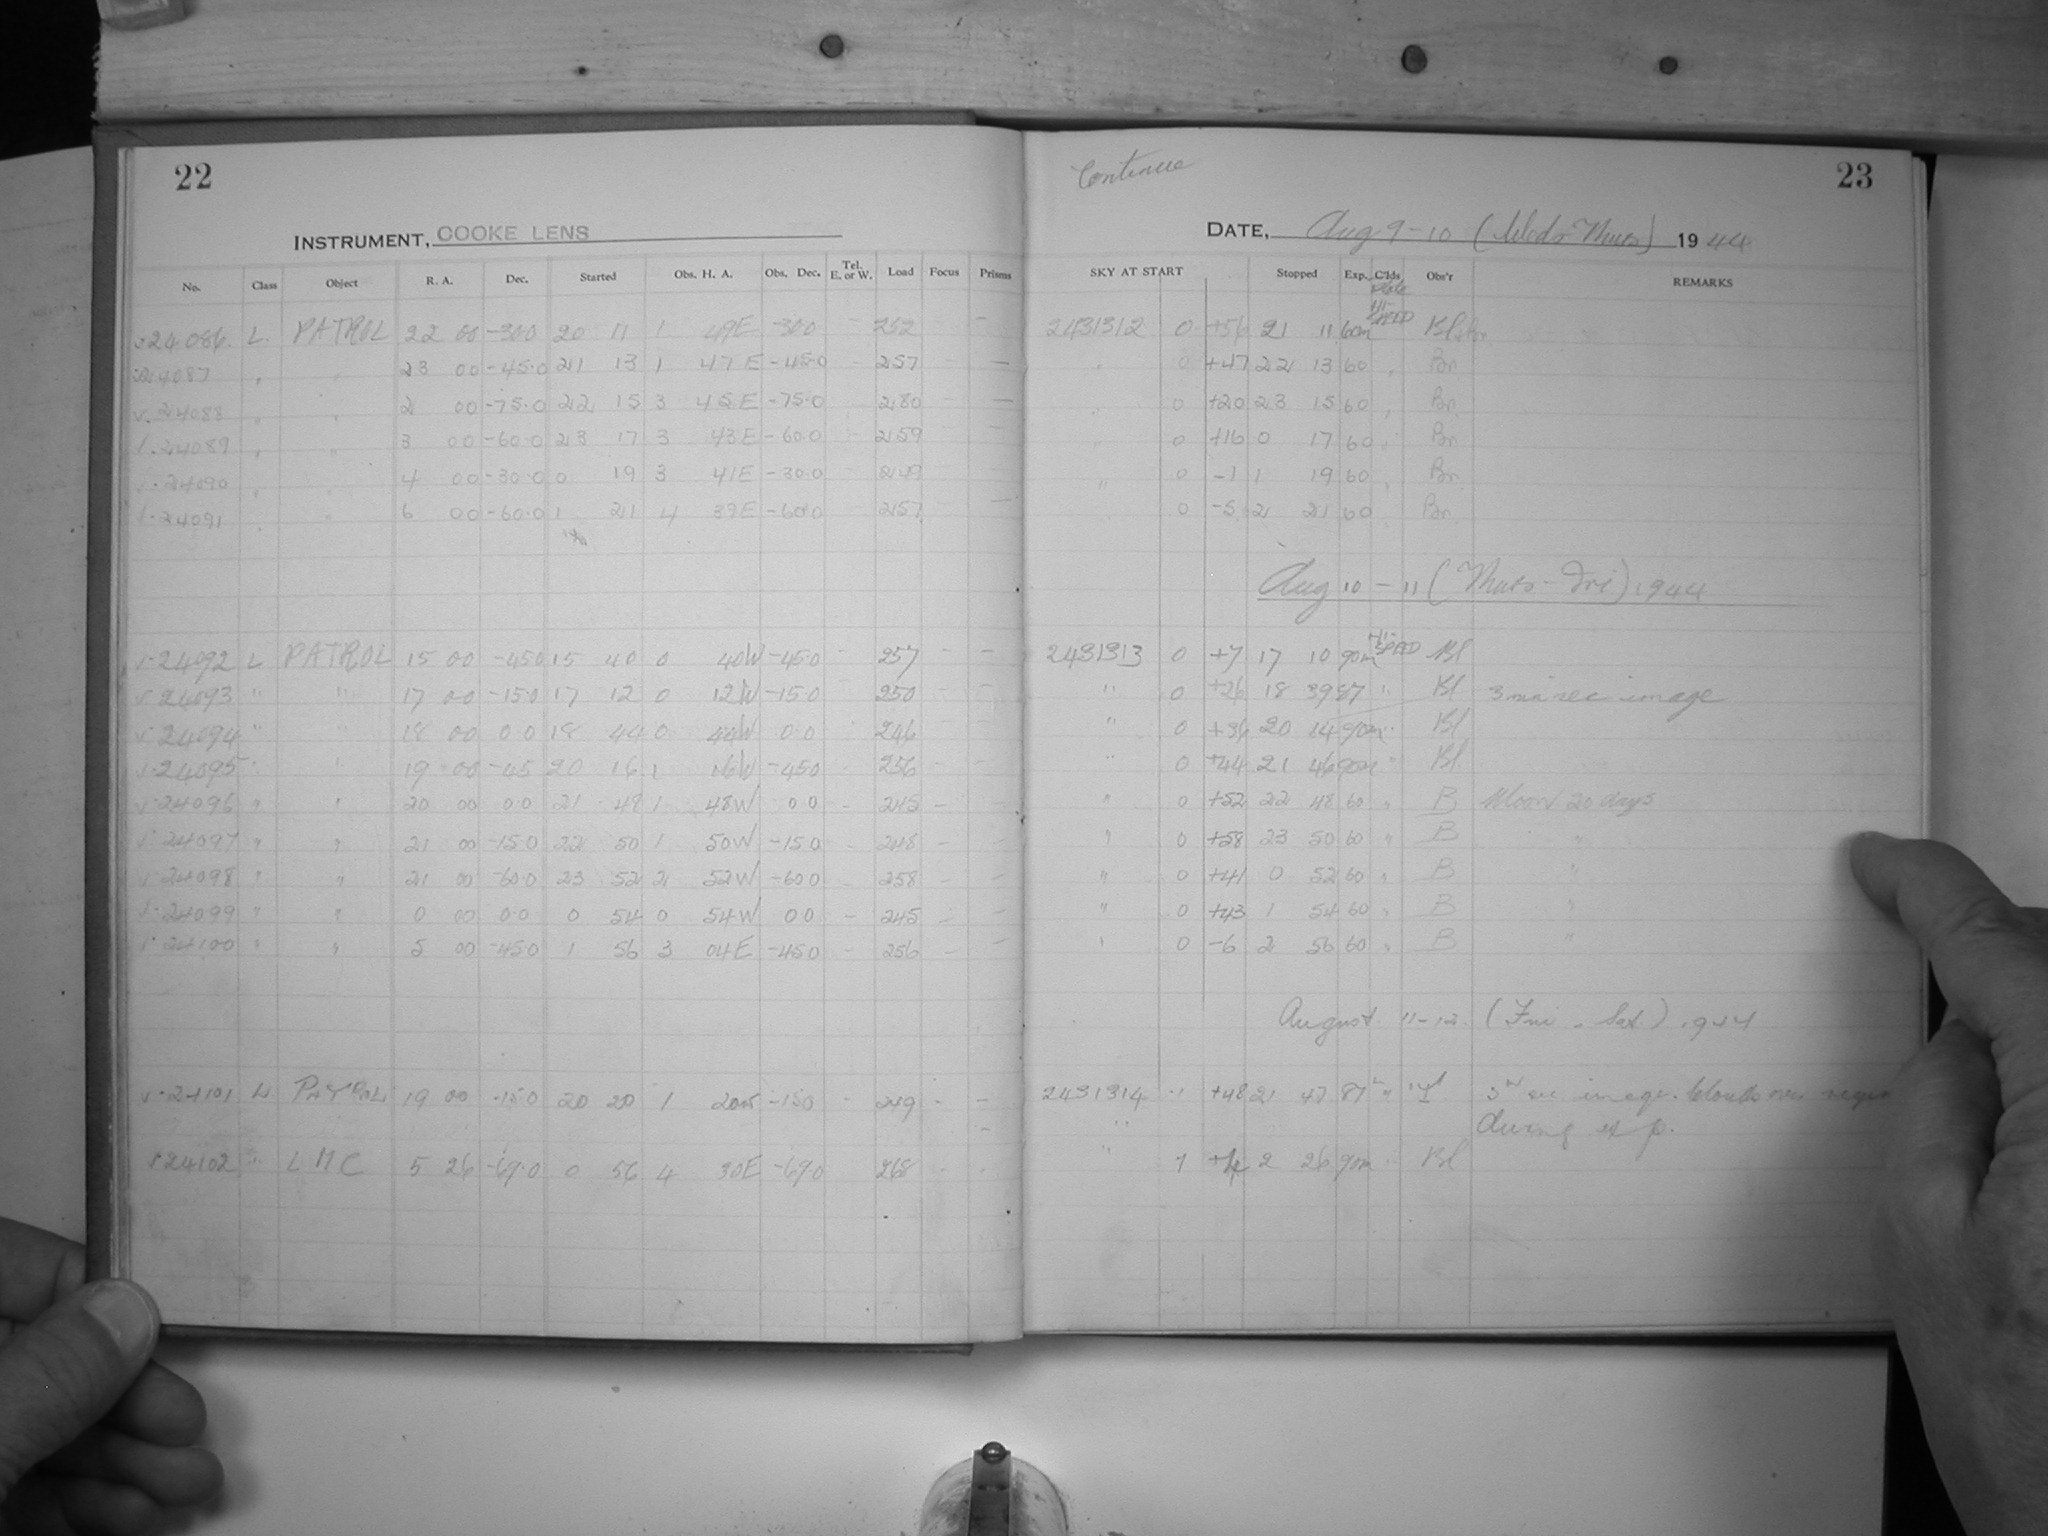 22
Continue
23
INSTRUMENT, COOKE LENS
DATE, Aug 9-10 (Weds-Thurs) 1944
No. Class Object R. A. Dec. Started Obs. H. A. Obs. Dec. Tel. E. or W. Load Focus Prisms SKY AT START Stopped Exp. C'lds Obs'r REMARKS
24086 L. PATROL 22 00 -30.0 20 11 1 49E -30.0 - 252 - 2431312 0 +56 21 11 60m
24087 " " 23 00 -45.0 21 13 1 47E -45.0 257 - " 0 +47 22 13 60 " Br.
24088 " " 2 00 -75.0 22 15 3 45E -75.0 280 - " 0 +20 23 15 60 " Br.
24089 " " 3 00 -60.0 23 17 3 43E -60.0 259 - " 0 +16 0 17 60 " Br.
24090 " " 4 00 -30.0 0 19 3 41E -30.0 249 - " 0 -1 1 19 60 " Br.
24091 " " 6 00 -60.0 1 21 4 39E -60.0 257 - " 0 -5 2 21 60 Br.
Aug 10-11 (Thurs-Fri) 1944
24092 L PATROL 15 00 -45.0 15 40 0 40W -45.0 - 257 - - 2431313 0 +7 17 10 90m Hi SPEED Bl
24093 " " 17 00 -15.0 17 12 0 12W -15.0 - 250 - - " 0 +26 18 39 87 " Bl 3 min sec image
24094 " " 18 00 0.0 18 44 0 44W 0.0 - 246 - - " 0 +36 20 14 90m " Bl
24095 " " 19 00 -45 20 16 1 16W -45.0 - 256 - - " 0 +44 21 46 90m " Bl
24096 " " 20 00 0.0 21 48 1 48W 0.0 - 245 - - " 0 +52 22 48 60 " B Moon 20 days
24097 " " 21 00 -15.0 22 50 1 50W -15.0 - 248 - - " 0 +58 23 50 60 " B "
24098 " " 21 00 -60.0 23 52 2 52W -60.0 - 258 - - " 0 +41 0 52 60 " B "
24099 " " 0 00 0.0 0 54 0 54W 0.0 - 245 - - " 0 +43 1 54 60 " B "
24100 " " 5 00 -45.0 1 56 3 04E -45.0 - 256 - - " 0 -6 2 56 60 " B "
August 11-12 (Fri - Sat.) 1944
24101 L PATROL 19 00 -15.0 20 20 1 20W -15.0 - 249 - - 2431314 1 +48 21 47 87m " 3m sec image. Clouds over region
during exp.
24102 LMC 5 26 -69.0 0 56 4 30E -69.0 268 - - " 1 2 26 90m " Bl